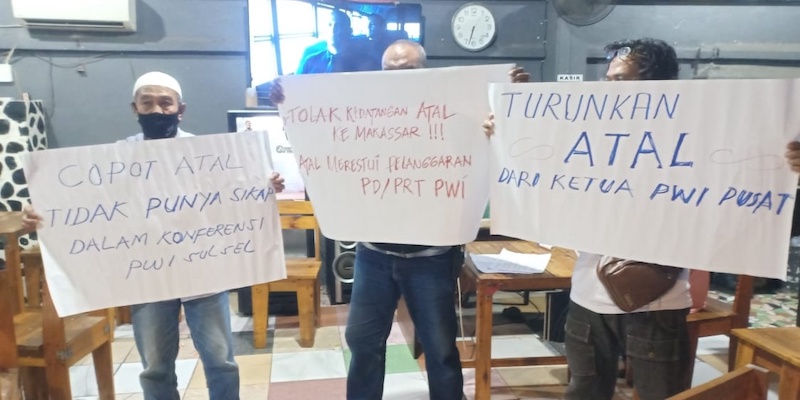 COPOT ATAL
TIDAK PUNYA SIKAP
DALAM KONFERENSI
PWI SULSEL
TOLAK KEDATANGAN ATAL
KE MAKASSAR !!!
ATAL MERESTUI PELANGGARAN
PD/PRT PWI
KASIR
TURUNKAN
ATAL
DARI KETUA PWI PUSAT